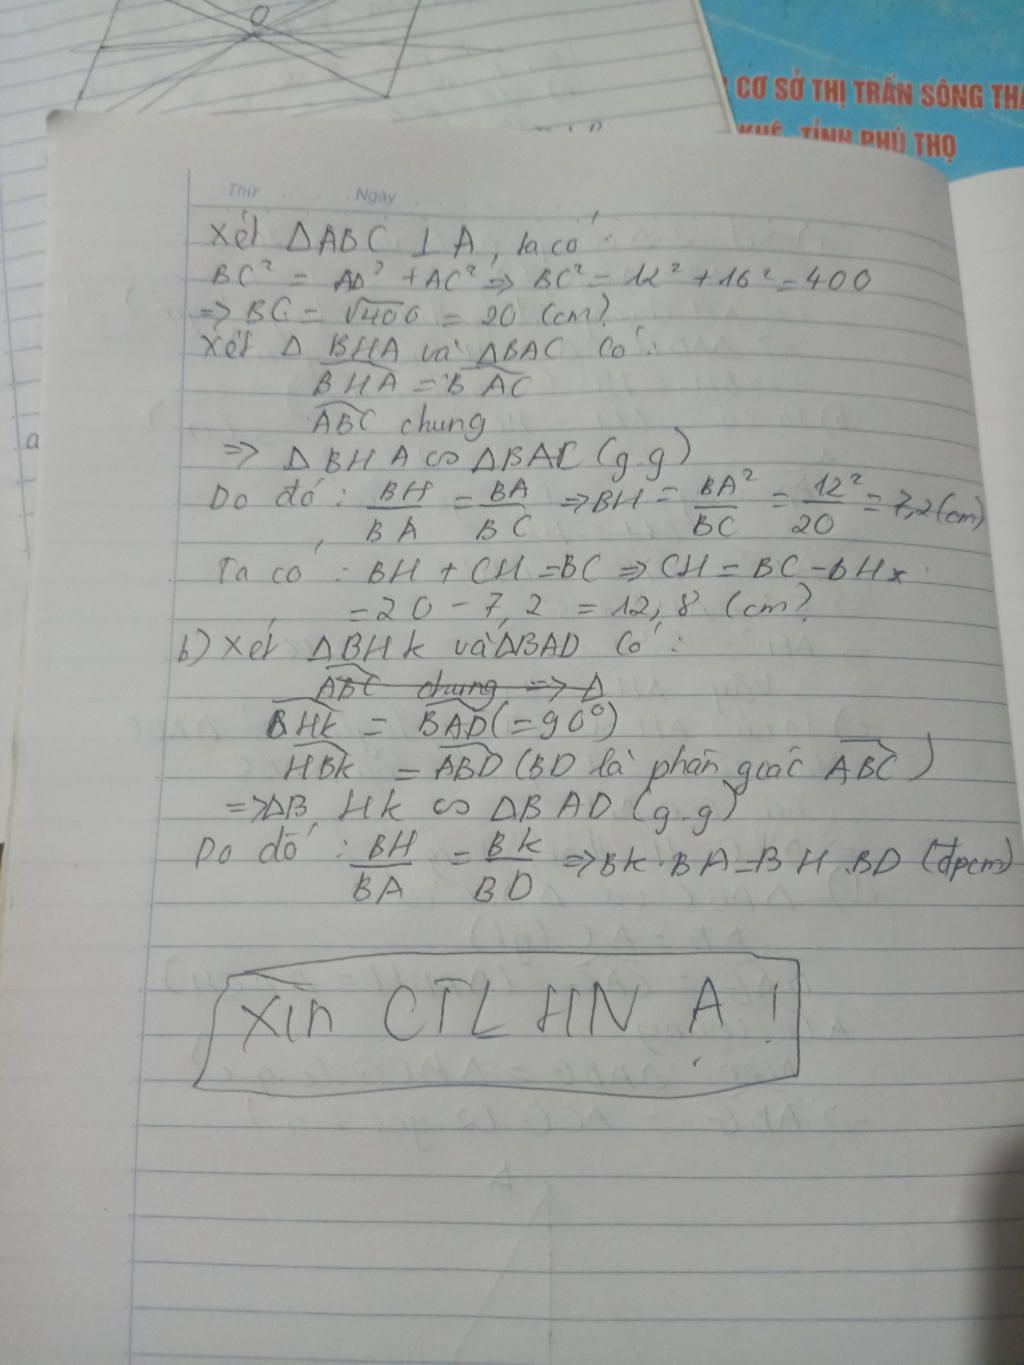 O
CƠ SỞ THỊ TRẤN SÔNG THA
KHÊ, TỈNH PHÚ THỌ
Thứ Ngày
Xét ΔABC ⊥ A, ta có:
BC² = AB² + AC² => BC² = 12² + 16² = 400
=> BC = √400 = 20 (cm)
Xét Δ BHA và ΔBAC có:
\widehat{BHA} = \widehat{BAC}
\widehat{ABC} chung
=> Δ BHA ∽ ΔBAC (g.g)
Do đó: BH/BA = BA/BC => BH = BA²/BC = 12²/20 = 7,2 (cm)
Ta có: BH + CH = BC => CH = BC - BH
= 20 - 7,2 = 12,8 (cm)
b) Xét ΔBHK và ΔBAD có:
\widehat{ABC} chung => Δ
\widehat{BHK} = \widehat{BAD} (= 90°)
\widehat{HBK} = \widehat{ABD} (BD là phân giác \widehat{ABC})
=> ΔBHK ∽ ΔBAD (g.g)
Do đó: BH/BA = BK/BD => BK.BA = BH.BD (đpcm)
Xin CTL HN Ạ!
a